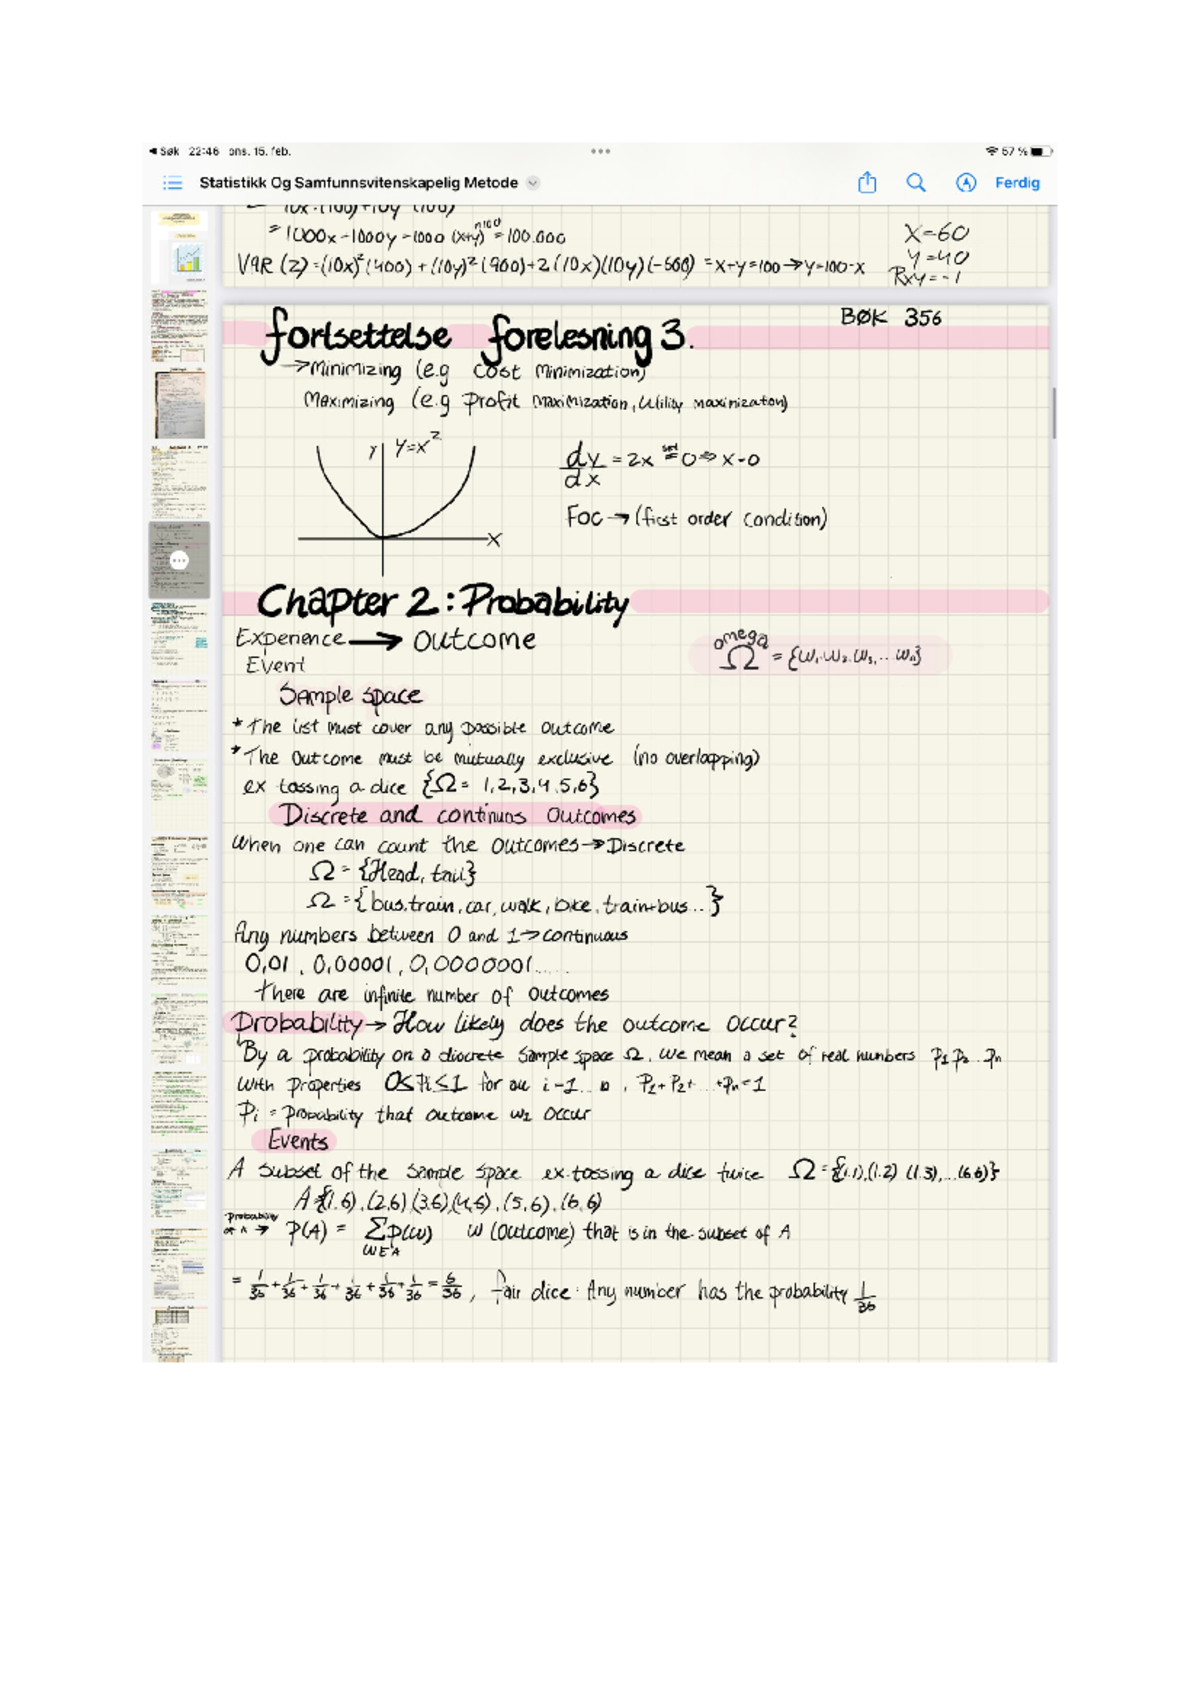 Søk 22:46 ons. 15. feb. 57 %
Statistikk Og Samfunnsvitenskapelig Metode Ferdig
= 1000x -1000y =1000 (x+y) = 100.000
X=60
VAR (Z) =(10x)²(400) + (10y)²(900)+2(10x)(10y)(-600) =x+y=100→y=100-x
Y=40
Rxy=-1
fortsettelse forelesning 3.
BØK 356
→Minimizing (e.g Cost Minimization)
Maximizing (e.g Profit Maximization, Utility maximization)
Y Y=x²
dy/dx = 2x set = 0 ⇒ x=0
X
FOC → (first order condition)
Chapter 2: Probability
Experience → Outcome
omega
Ω = {W₁,W₂,W₃,... Wn}
Event
Sample space
* The list must cover any possible outcome
* The outcome must be mutually exclusive (no overlapping)
ex tossing a dice {Ω = 1,2,3,4,5,6}
Discrete and continuos Outcomes
When one can count the outcomes→Discrete
Ω = {Head, tail}
Ω = {bus,train, car, walk, bike, train+bus...}
Any numbers between 0 and 1→continuous
0,01 , 0,00001 , 0,0000001.....
There are infinite number of outcomes
Probability → How likely does the outcome occur?
By a probability on a discrete sample space Ω, we mean a set of real numbers P₁ P₂.. Pn
With properties 0≤Pi≤1 for all i=1... n , P₁+P₂+ ... +Pn=1
Pi = Probability that outcome w₂ occur
Events
A subset of the sample space ex.tossing a dice twice Ω={(1.1),(1.2) (1.3),...(6.6)}
A={(1,6),(2,6)(3,6)(4,6),(5,6),(6,6)
Probability of A → P(A) = ΣP(w) w (outcome) that is in the subset of A
WEA
= 1/36 + 1/36 + 1/36 + 1/36 + 1/36 + 1/36 = 6/36 , fair dice: Any number has the probability 1/36